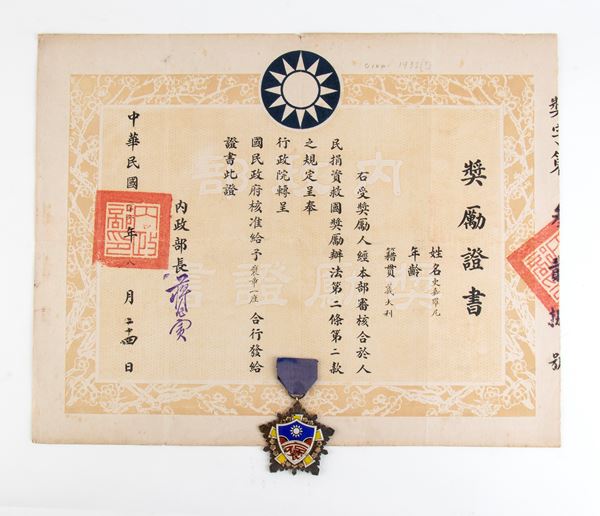 獎字第 叁 貳 拾 號
獎勵證書
姓名史嘉羅尼
年齡
籍貫義大利
右受獎勵人經本部審核合於人
民捐資救國獎勵辦法第二條第二款
之規定呈奉
行政院轉呈
國民政府核准給予獎章一座 合行發給
證書此證
內政部長
中華民國 年 八 月 二十四 日
內政部
獎勵證書
Circa 1932(?)